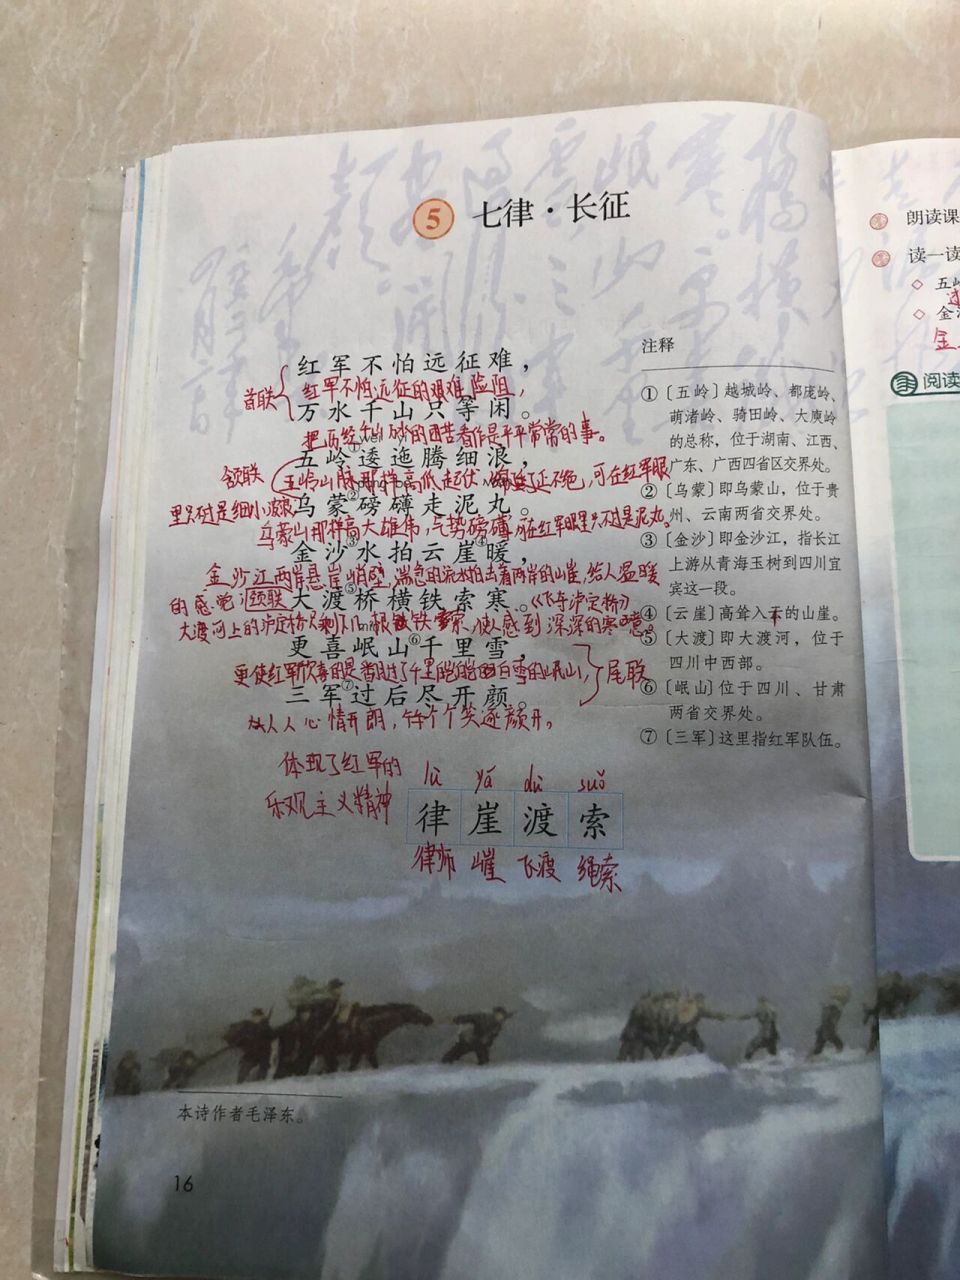 5 七律·长征
红军不怕远征难，
首联 红军不怕远征的艰难险阻，
万水千山只等闲。
的困苦看作是平平常常的事。
五岭①逶迤腾细浪，
颔联 五岭山脉那样高低起伏 可在红军眼
里只不过是细小的波浪
乌蒙②磅礴走泥丸。
乌蒙山那样高大雄伟，气势磅礴，可在红军眼里只不过是泥丸。
金沙③水拍云崖④暖，
金沙江两岸悬崖峭壁，湍急的流水拍击着两岸的山崖，给人温暖
的感觉； 颈联
大渡⑤桥横铁索寒。 《飞夺泸定桥》
大渡河上的泸定桥 根铁索，使人感到深深的寒意。
更喜岷山⑥千里雪，
更使红军欣喜的是 千里 白雪的岷山， 尾联
三军⑦过后尽开颜。
人人心情开朗，个个笑逐颜开。
体现了红军的
乐观主义精神
lǜ yá dù suǒ
律 崖 渡 索
律师 飞渡 绳索
注释
①〔五岭〕越城岭、都庞岭、
萌渚岭、骑田岭、大庾岭
的总称，位于湖南、江西、
广东、广西四省区交界处。
②〔乌蒙〕即乌蒙山，位于贵
州、云南两省交界处。
③〔金沙〕即金沙江，指长江
上游从青海玉树到四川宜
宾这一段。
④〔云崖〕高耸入云的山崖。
⑤〔大渡〕即大渡河，位于
四川中西部。
⑥〔岷山〕位于四川、甘肃
两省交界处。
⑦〔三军〕这里指红军队伍。
本诗作者毛泽东。
16
朗读课
读一读
◇ 五岭
◇ 金沙
阅读